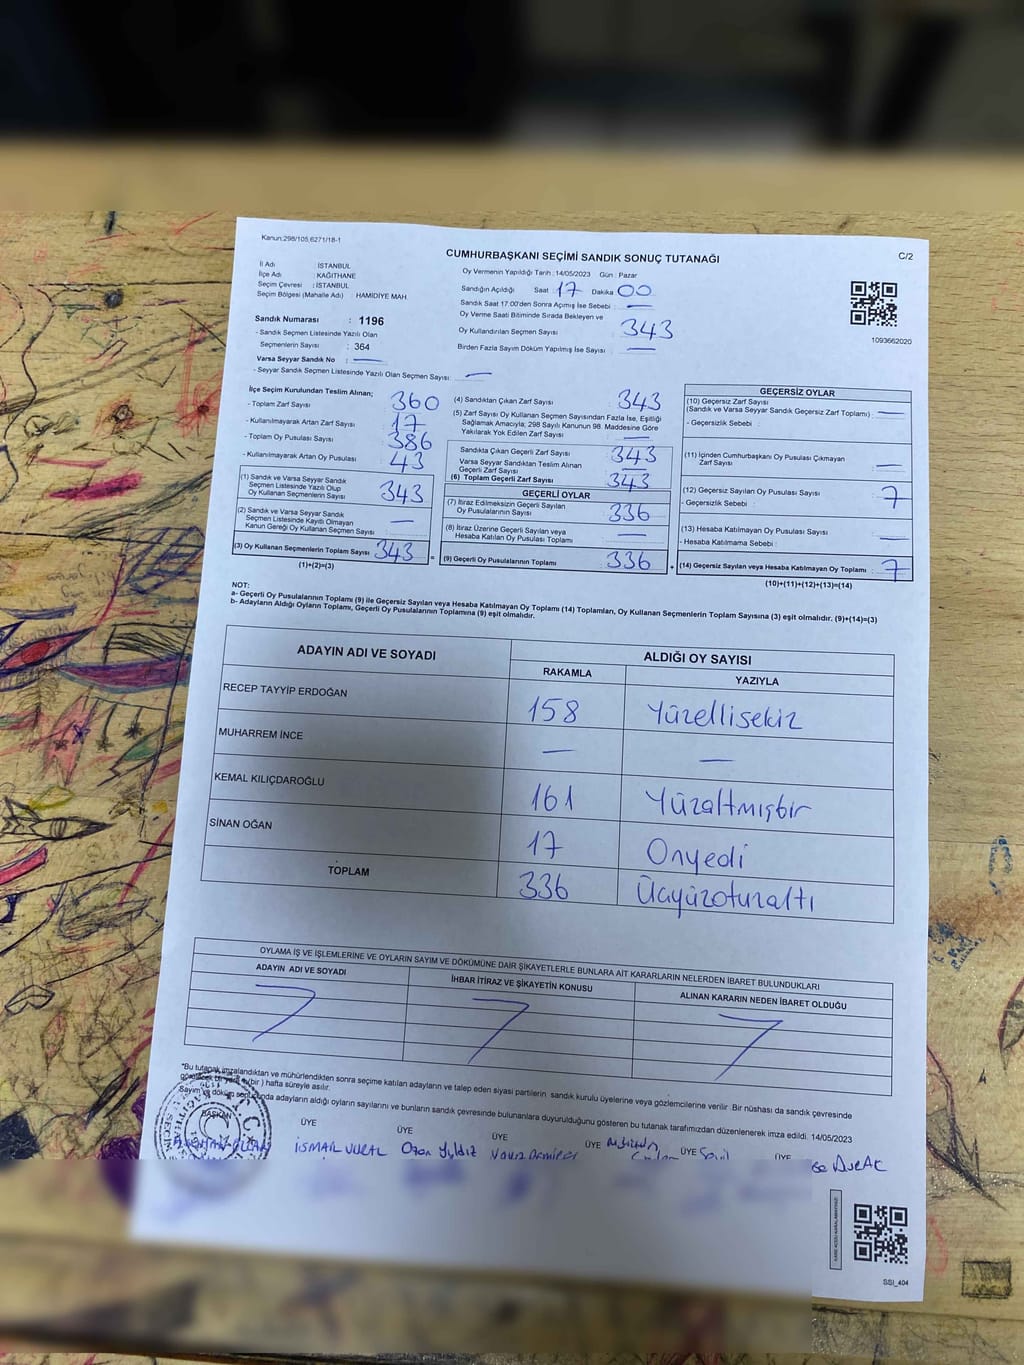 Kanun:298/105,6271/18-1
C/2
CUMHURBAŞKANI SEÇİMİ SANDIK SONUÇ TUTANAĞI
İl Adı : İSTANBUL
İlçe Adı : KAĞITHANE
Seçim Çevresi : İSTANBUL
Seçim Bölgesi (Mahalle Adı) : HAMIDIYE MAH.
Oy Vermenin Yapıldığı Tarih :14/05/2023 Gün : Pazar
Sandığın Açıldığı Saat : 17 Dakika : 00
Sandık Saat 17.00'den Sonra Açımış İse Sebebi : —
Oy Verme Saati Bitiminde Sırada Bekleyen ve
Oy Kullandırılan Seçmen Sayısı : 343
Birden Fazla Sayım Döküm Yapılmış İse Sayısı : —
1093662020
Sandık Numarası : 1196
- Sandık Seçmen Listesinde Yazılı Olan
Seçmenlerin Sayısı : 364
Varsa Seyyar Sandık No : —
- Seyyar Sandık Seçmen Listesinde Yazılı Olan Seçmen Sayısı: —
İlçe Seçim Kurulundan Teslim Alınan;
- Toplam Zarf Sayısı : 360
- Kullanılmayarak Artan Zarf Sayısı : 17
- Toplam Oy Pusulası Sayısı : 386
- Kullanılmayarak Artan Oy Pusulası : 43
(1) Sandık ve Varsa Seyyar Sandık
Seçmen Listesinde Yazılı Olup
Oy Kullanan Seçmenlerin Sayısı : 343
(2) Sandık ve Varsa Seyyar Sandık
Seçmen Listesinde Kayıtlı Olmayan
Kanun Gereği Oy Kullanan Seçmen Sayısı : —
(3) Oy Kullanan Seçmenlerin Toplam Sayısı : 343 =
(1)+(2)=(3)
(4) Sandıktan Çıkan Zarf Sayısı : 343
(5) Zarf Sayısı Oy Kullanan Seçmen Sayısından Fazla İse, Eşitliği
Sağlamak Amacıyla; 298 Sayılı Kanunun 98. Maddesine Göre
Yakılarak Yok Edilen Zarf Sayısı : —
Sandıkta Çıkan Geçerli Zarf Sayısı : 343
Varsa Seyyar Sandıktan Teslim Alınan
Geçerli Zarf Sayısı : —
(6) Toplam Geçerli Zarf Sayısı : 343
GEÇERLİ OYLAR
(7) İtiraz Edilmeksizin Geçerli Sayılan
Oy Pusulasının Sayısı : 336
(8) İtiraz Üzerine Geçerli Sayılan veya
Hesaba Katılan Oy Pusulası Toplamı : —
(9) Geçerli Oy Pusulalarının Toplamı : 336 +
GEÇERSİZ OYLAR
(10) Geçersiz Zarf Sayısı
(Sandık ve Varsa Seyyar Sandık Geçersiz Zarf Toplamı) : —
- Geçersizlik Sebebi :
(11) İçinden Cumhurbaşkanı Oy Pusulası Çıkmayan
Zarf Sayısı : —
(12) Geçersiz Sayılan Oy Pusulası Sayısı : 7
- Geçersizlik Sebebi :
(13) Hesaba Katılmayan Oy Pusulası Sayısı : —
- Hesaba Katılmama Sebebi :
(14) Geçersiz Sayılan veya Hesaba Katılmayan Oy Toplamı : 7
(10)+(11)+(12)+(13)=(14)
NOT:
a- Geçerli Oy Pusulalarının Toplamı (9) ile Geçersiz Sayılan veya Hesaba Katılmayan Oy Toplamı (14) Toplamları, Oy Kullanan Seçmenlerin Toplam Sayısına (3) eşit olmalıdır. (9)+(14)=(3)
b- Adayların Aldığı Oyların Toplamı, Geçerli Oy Pusulalarının Toplamına (9) eşit olmalıdır.
ADAYIN ADI VE SOYADI ALDIĞI OY SAYISI
RAKAMLA YAZIYLA
RECEP TAYYİP ERDOĞAN 158 Yüzellisekiz
MUHARREM İNCE — —
KEMAL KILIÇDAROĞLU 161 Yüzaltmışbir
SİNAN OĞAN 17 Onyedi
TOPLAM 336 Üçyüzotuzaltı
OYLAMA İŞ VE İŞLEMLERİNE VE OYLARIN SAYIM VE DÖKÜMÜNE DAİR ŞİKAYETLERLE BUNLARA AİT KARARLARIN NELERDEN İBARET BULUNDUKLARI
ADAYIN ADI VE SOYADI İHBAR İTİRAZ VE ŞİKAYETİN KONUSU ALINAN KARARIN NEDEN İBARET OLDUĞU
*Bu tutanak imzalandıktan ve mühürlendikten sonra seçime katılan adayların ve talep eden siyasi partilerin sandık kurulu üyelerine veya gözlemcilerine verilir. Bir nüshası da sandık çevresinde
görebilecek bir yere 1(bir ) hafta süreyle asılır.
Sayım ve döküm sonucunda adayların aldığı oyların sayılarını ve bunların sandık çevresinde bulunanlara duyurulduğunu gösteren bu tutanak tarafımızdan düzenlenerek imza edildi. 14/05/2023
BAŞKAN ÜYE ÜYE ÜYE ÜYE ÜYE ÜYE
İSMAİL VURAL Ozan Yıldız
SSI_404